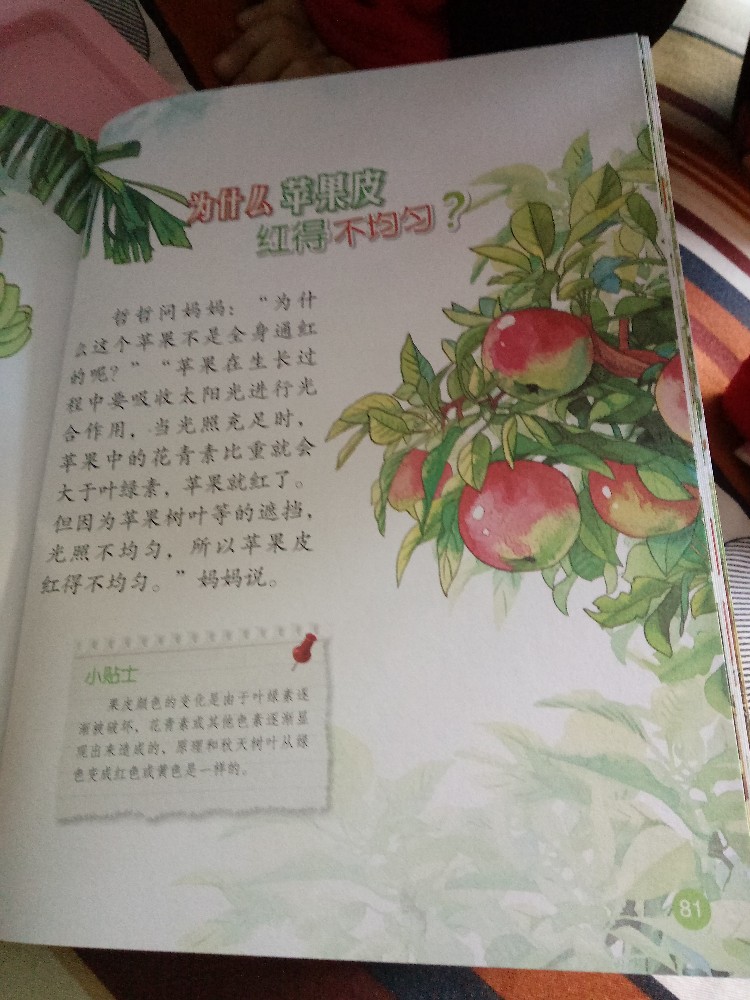 为什么苹果皮
红得不均匀？
哲哲问妈妈：“为什
么这个苹果不是全身通红
的呢？”“苹果在生长过
程中要吸收太阳光进行光
合作用，当光照充足时，
苹果中的花青素比重就会
大于叶绿素，苹果就红了。
但因为苹果树叶等的遮挡，
光照不均匀，所以苹果皮
红得不均匀。”妈妈说。
小贴士
果皮颜色的变化是由于叶绿素逐
渐被破坏，花青素或其他色素逐渐显
现出来造成的，原理和秋天树叶从绿
色变成红色或黄色是一样的。
81